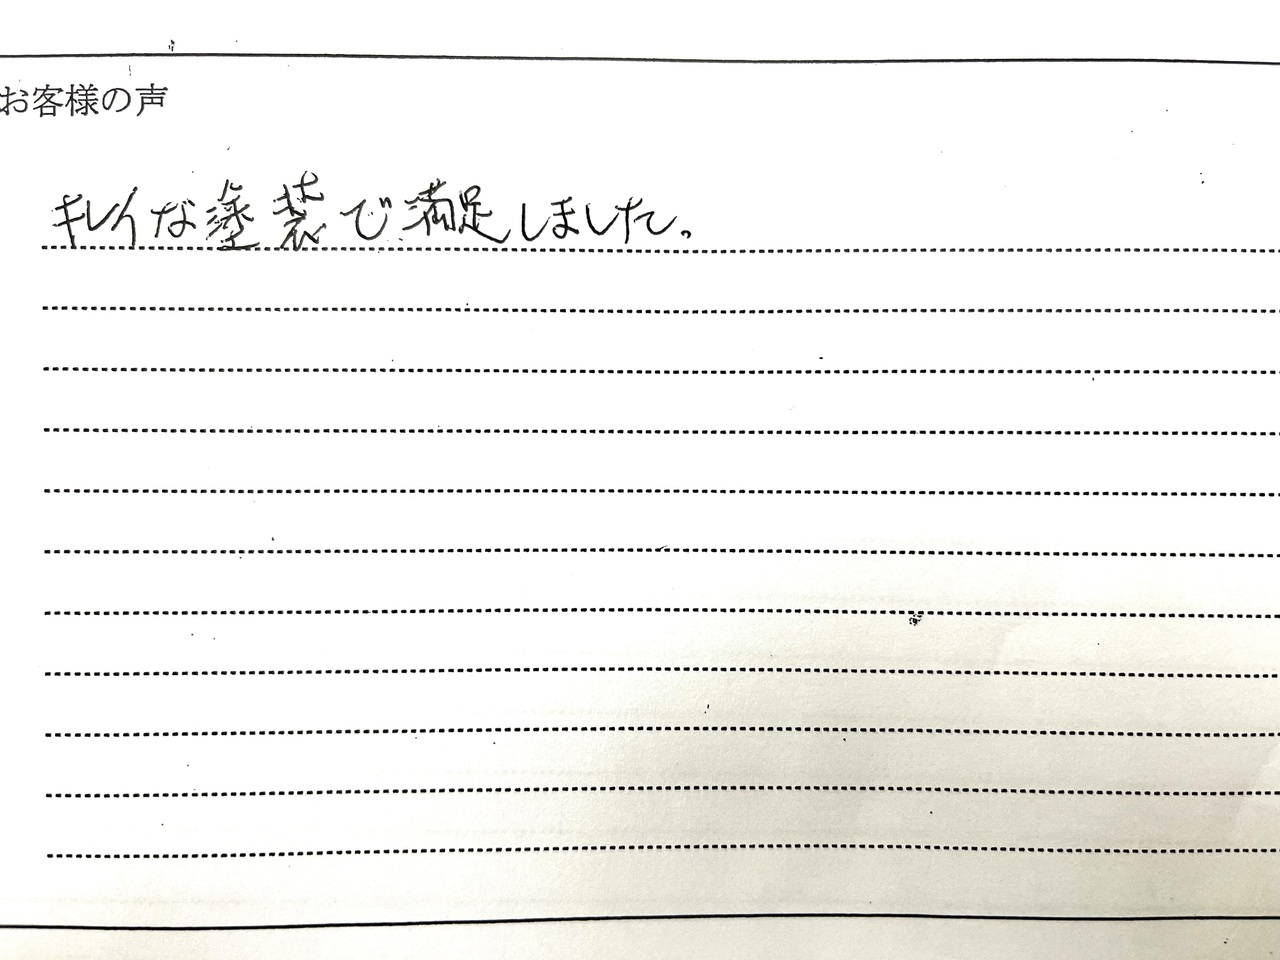 お客様の声
キレイな塗装で満足しました。